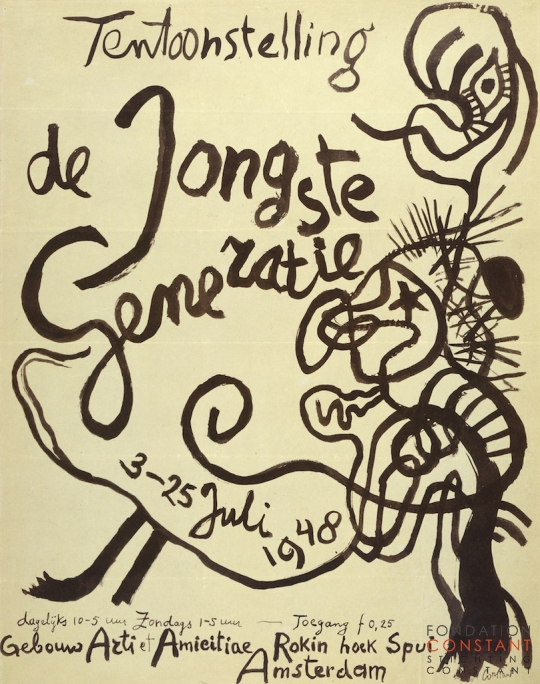 Tentoonstelling
de Jongste
Generatie
3-25 Juli
1948
dagelijks 10-5 uur Zondags 1-5 uur — Toegang f 0,25
Gebouw Arti et Amicitiae Rokin hoek Spui
Amsterdam
FONDATION
CONSTANT
STICHTING
CONSTANT
Constant